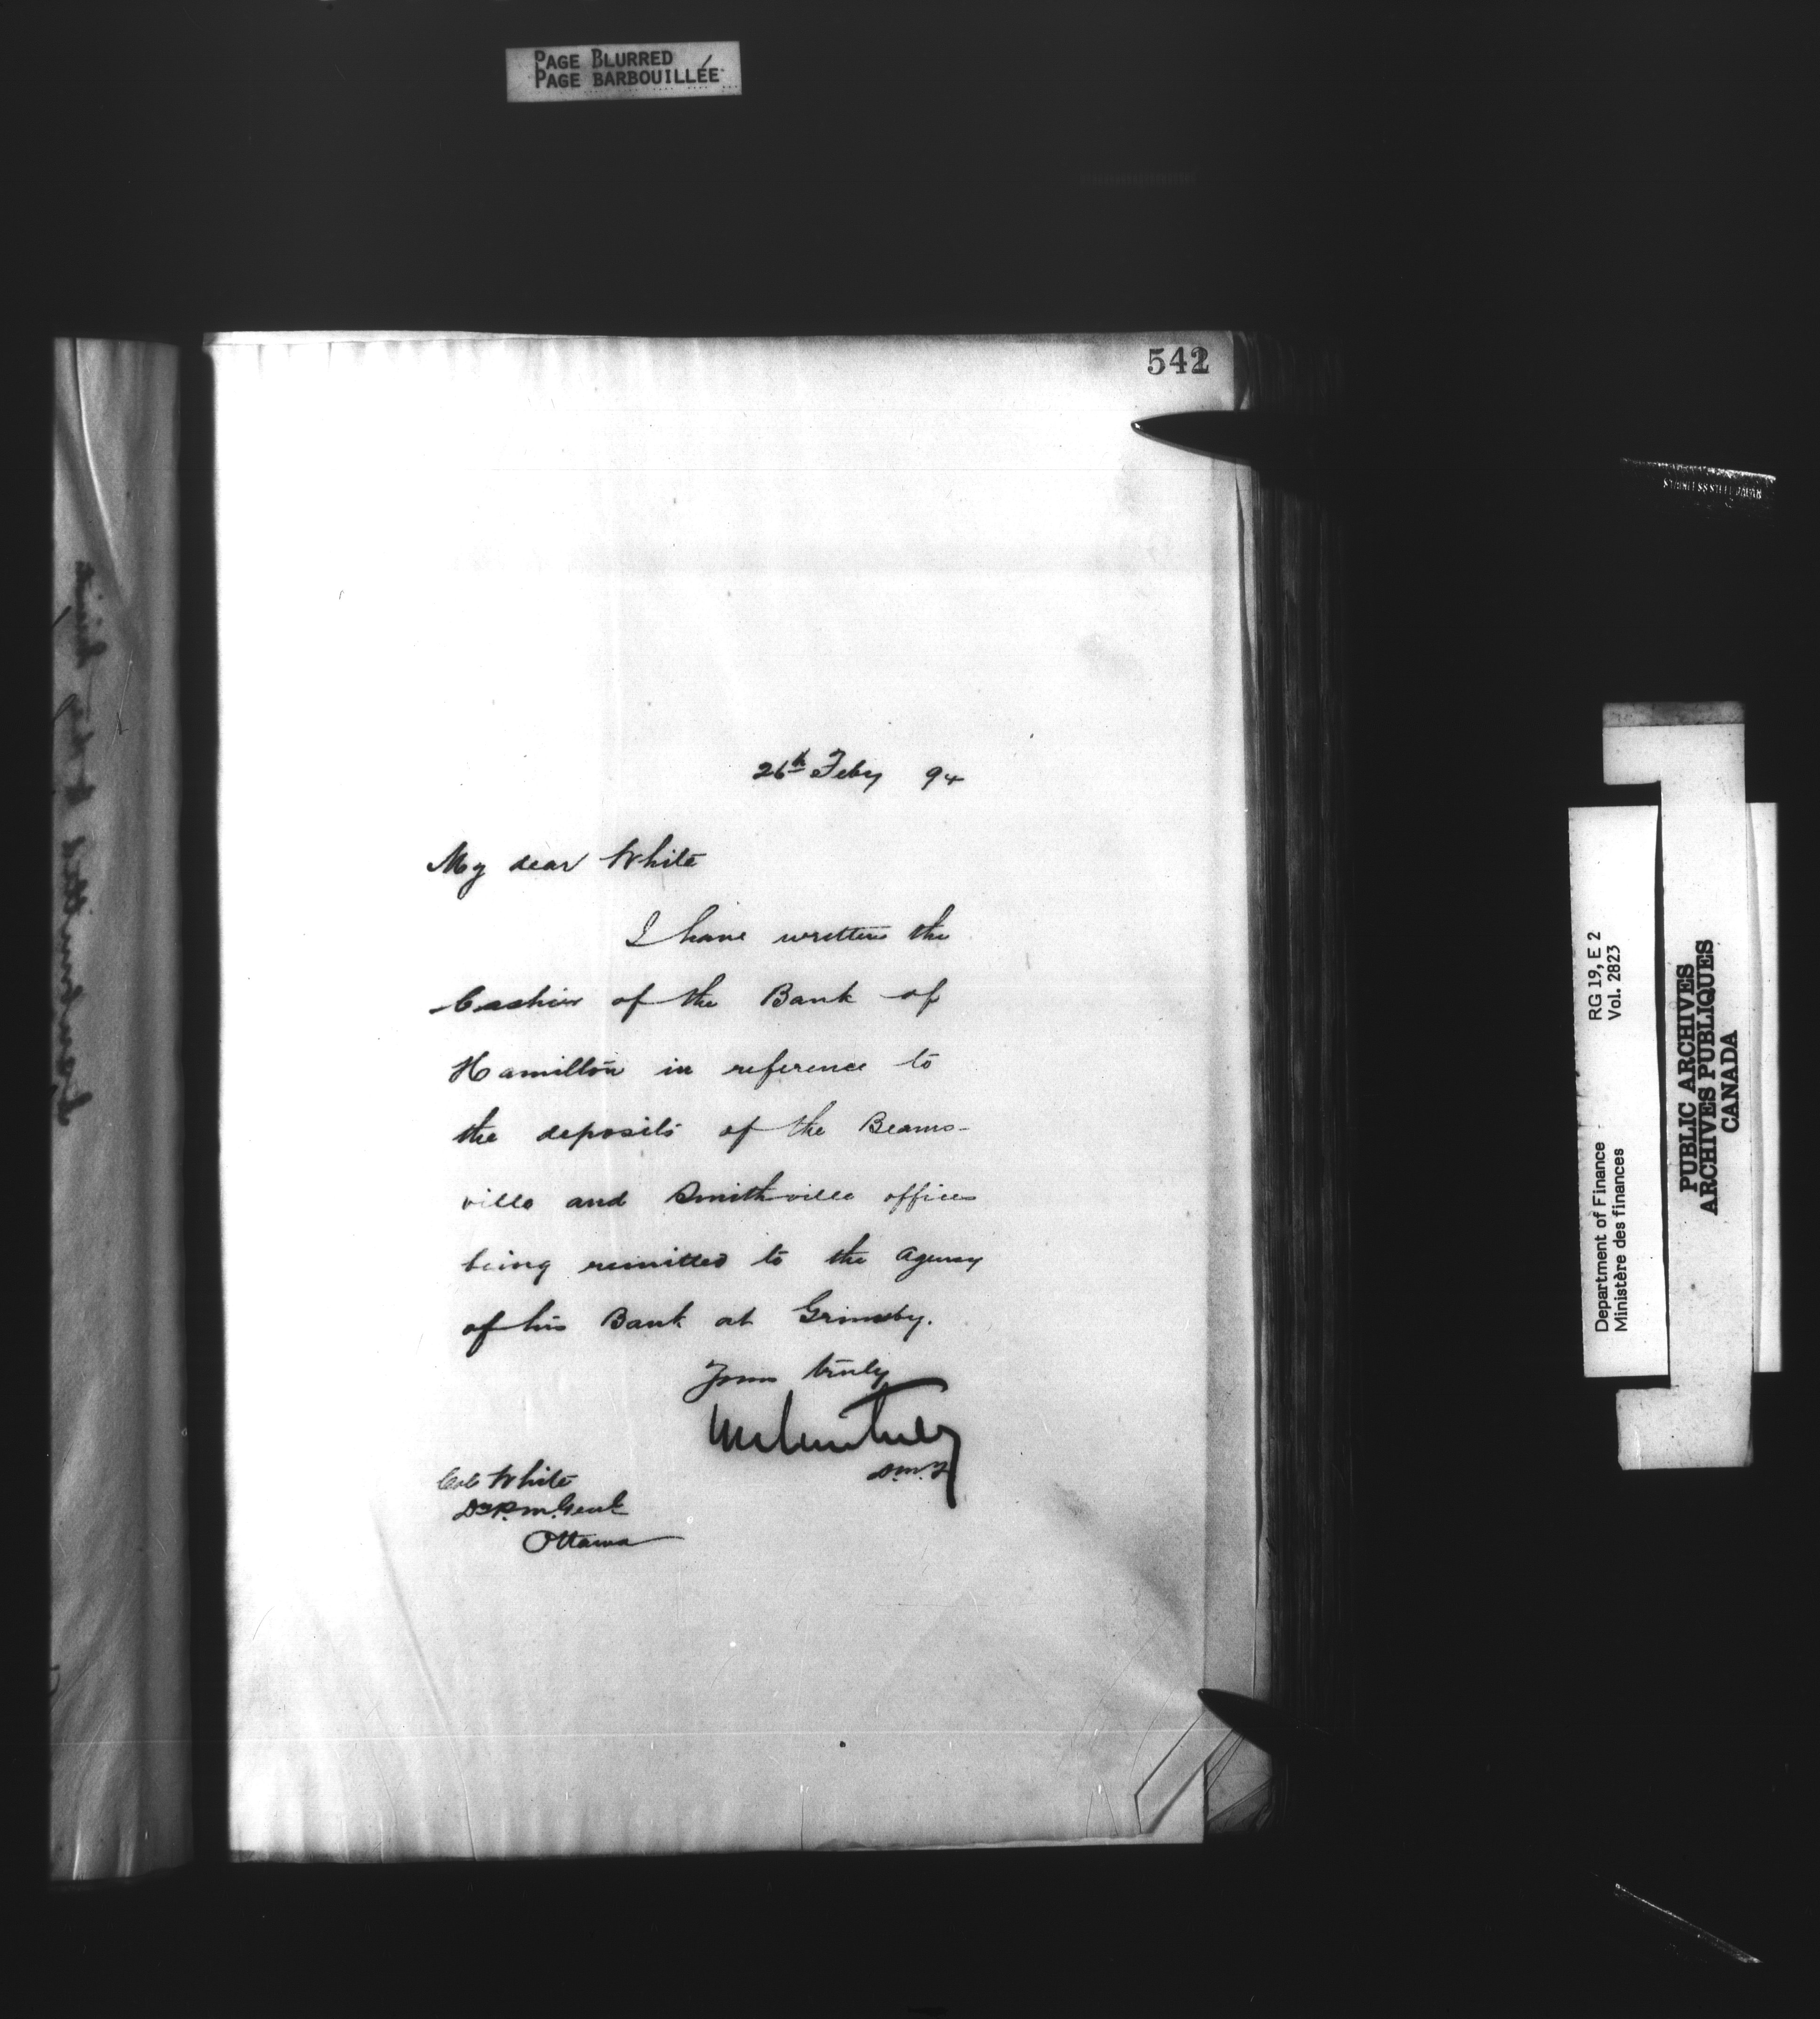 PAGE BLURRED
PAGE BARBOUILLÉE
542
26th Feby 94
My dear White
I have written the
Cashier of the Bank of
Hamilton in reference to
the deposits of the Beams-
ville and Smithville offices
being remitted to the Agency
of his Bank at Grimsby.
Yours truly
D.M.F.
Col White
Dy P.M. Genl
Ottawa
RG 19, E 2
Vol. 2823
Department of Finance
Ministère des finances
PUBLIC ARCHIVES
ARCHIVES PUBLIQUES
CANADA